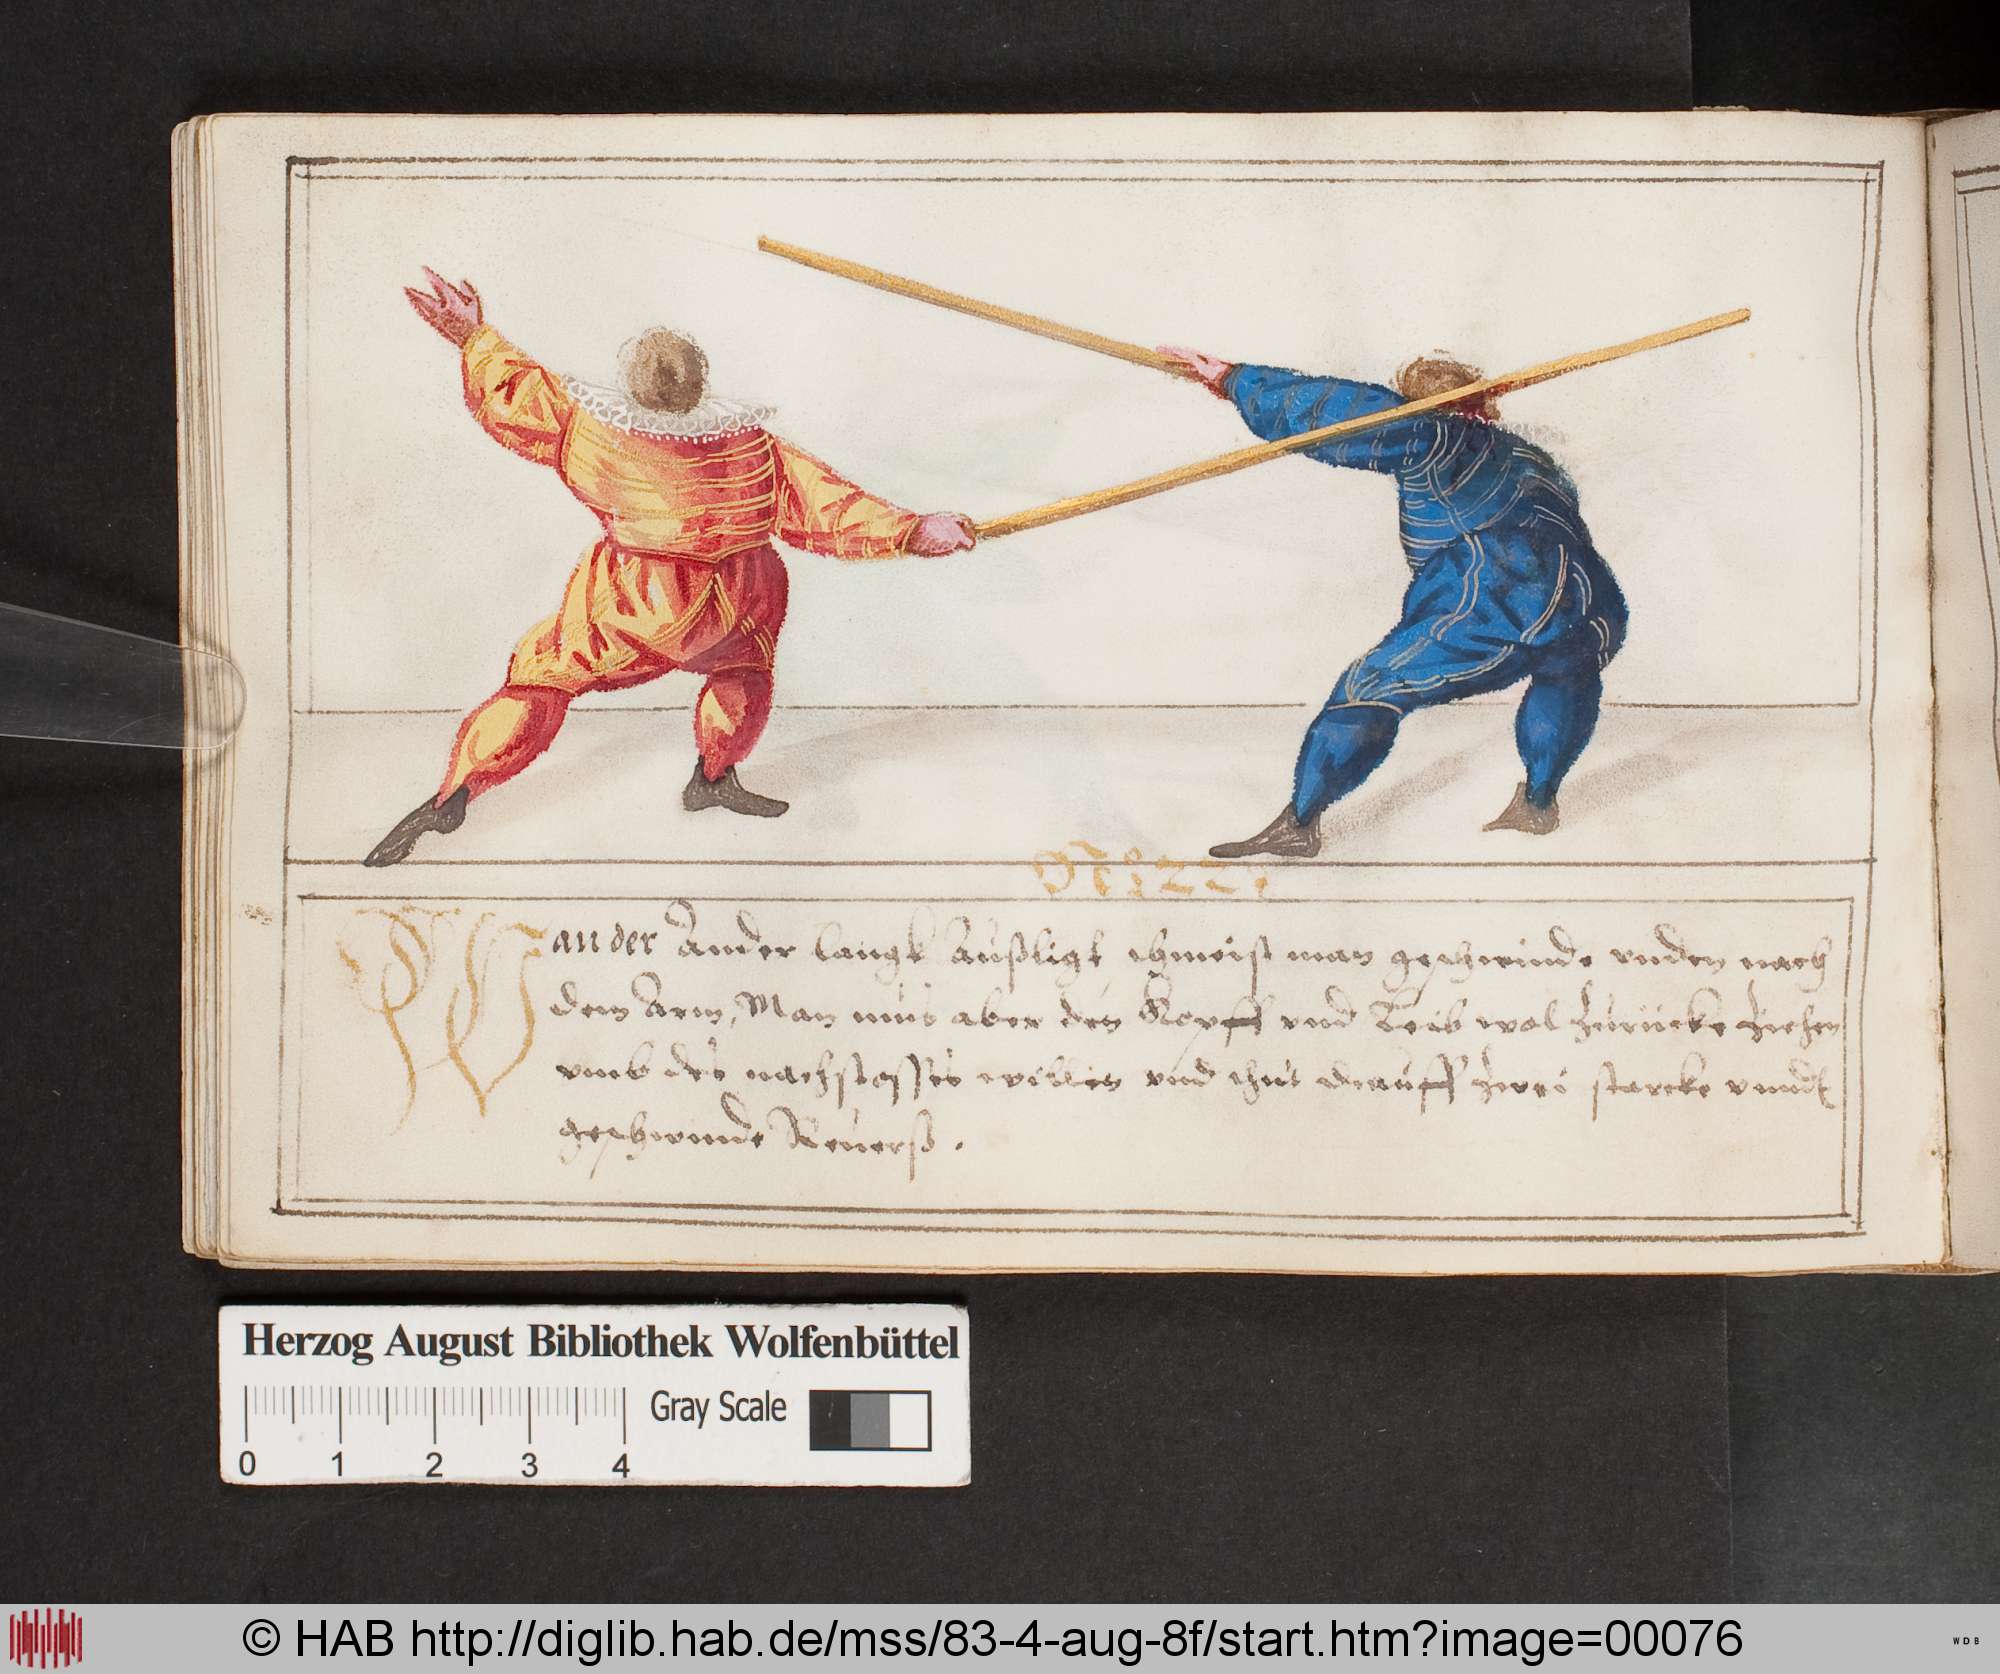 Wan der Ander langk Außligt schmeist man geschwinde vnden nach
dem Arm, Man mus aber den Kopff vnd Leib wol zurücke ziehen
vmb des nachstosses willen vnd thut drauff zwei starcke vnndt
geschwinde Reuerß.
Herzog August Bibliothek Wolfenbüttel
Gray Scale
0 1 2 3 4
© HAB http://diglib.hab.de/mss/83-4-aug-8f/start.htm?image=00076
WDB